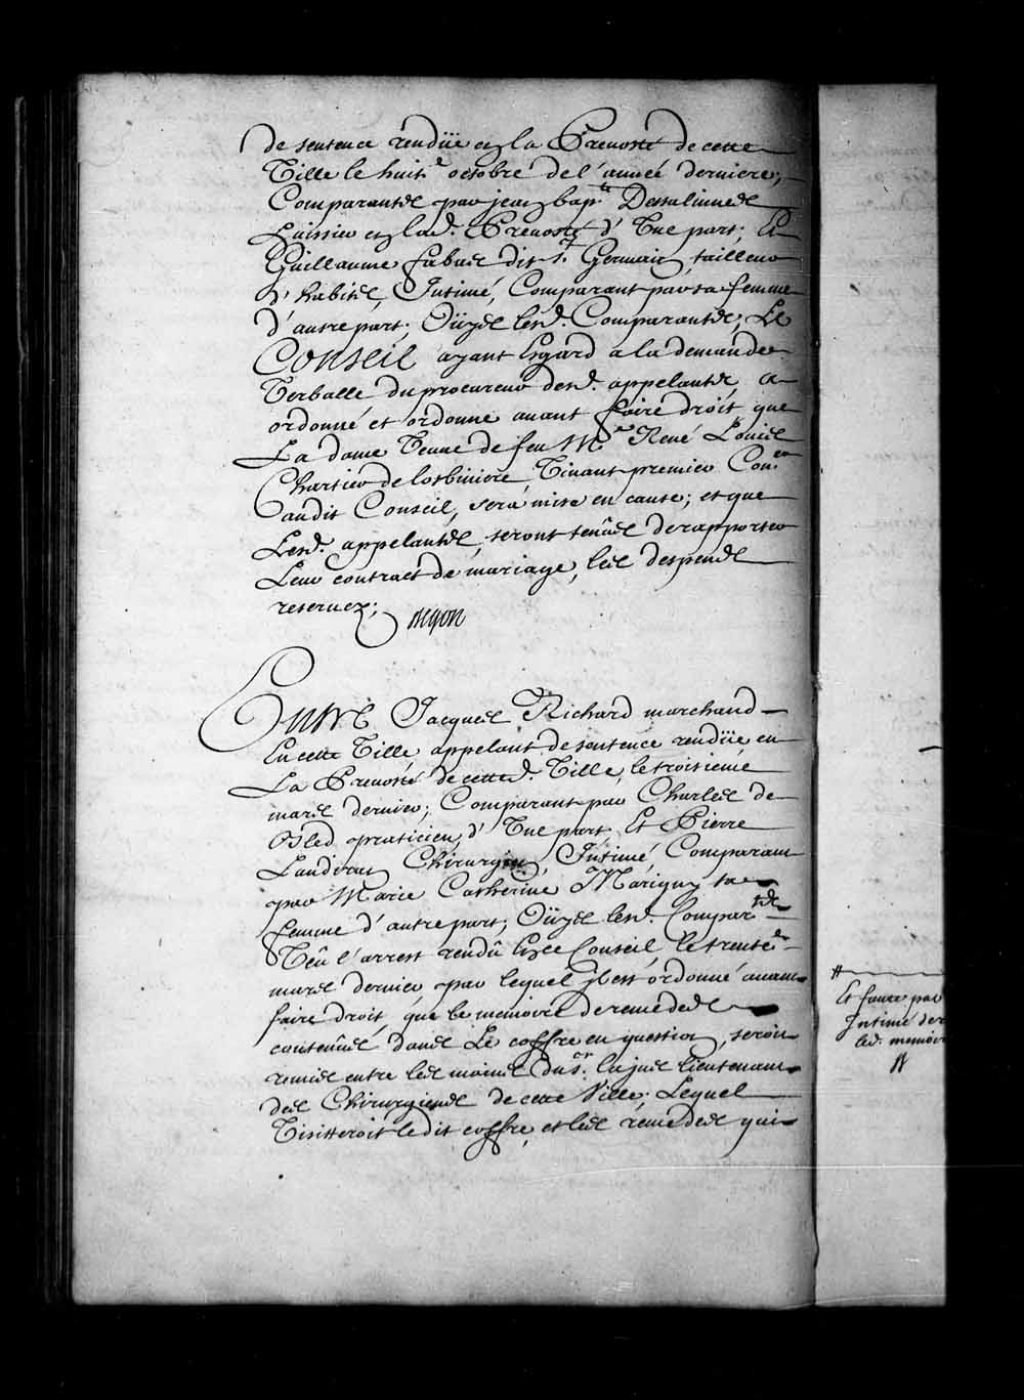 de sentence rendüe en la Prevosté de cette
Ville le huit.e octobre de l'année derniere,
Comparants par jean bap.te Dessalinnes
huissier en lad. Prevosté d'Vne part; Et
Guillaume fabas dit s.t Germain, tailleur
d'habits, Intimé, Comparant par sa femme
d'autre part; Oüys lesd. Comparants, Le
Conseil ayant Esgard a la demande
Verballe du procureur desd. appelants, a
ordonné et ordonne avant faire droit que
La dame Veuve de feu M.e René Louis
Chartier de lotbiniere, Vivant premier Con.er
audit Conseil, sera mise en cause; et que
Lesd. appelants, seront tenûs de rapporter
Leur contract de mariage, les despends
reservez;
Begon
Entre Jacques Richard marchand
En cette Ville, appelant de sentence rendüe en
La Prevosté de cetted. Ville, le troisieme
mars dernier; Comparant par Charles de
praticien, d'Vne part, Et Pierre
Chirurgien, Intimé, Comparant
par Marie Catherine Marigny sa
femme d'autre part; Oüys lesd. Compar.ts
Veû l'arrest rendû En ce Conseil, le trente
mars dernier par lequel jl est ordonné avant
faire droit, que le memoire de remedes
contenûs dans Le coffre en question, seroit
remis entre les mains du s.r lieutenant
des Chirurgiens de cette Ville, Lequel
Visitteroit ledit coffre, et les remedes qui
Et faute par
Intimé de
led. memoir